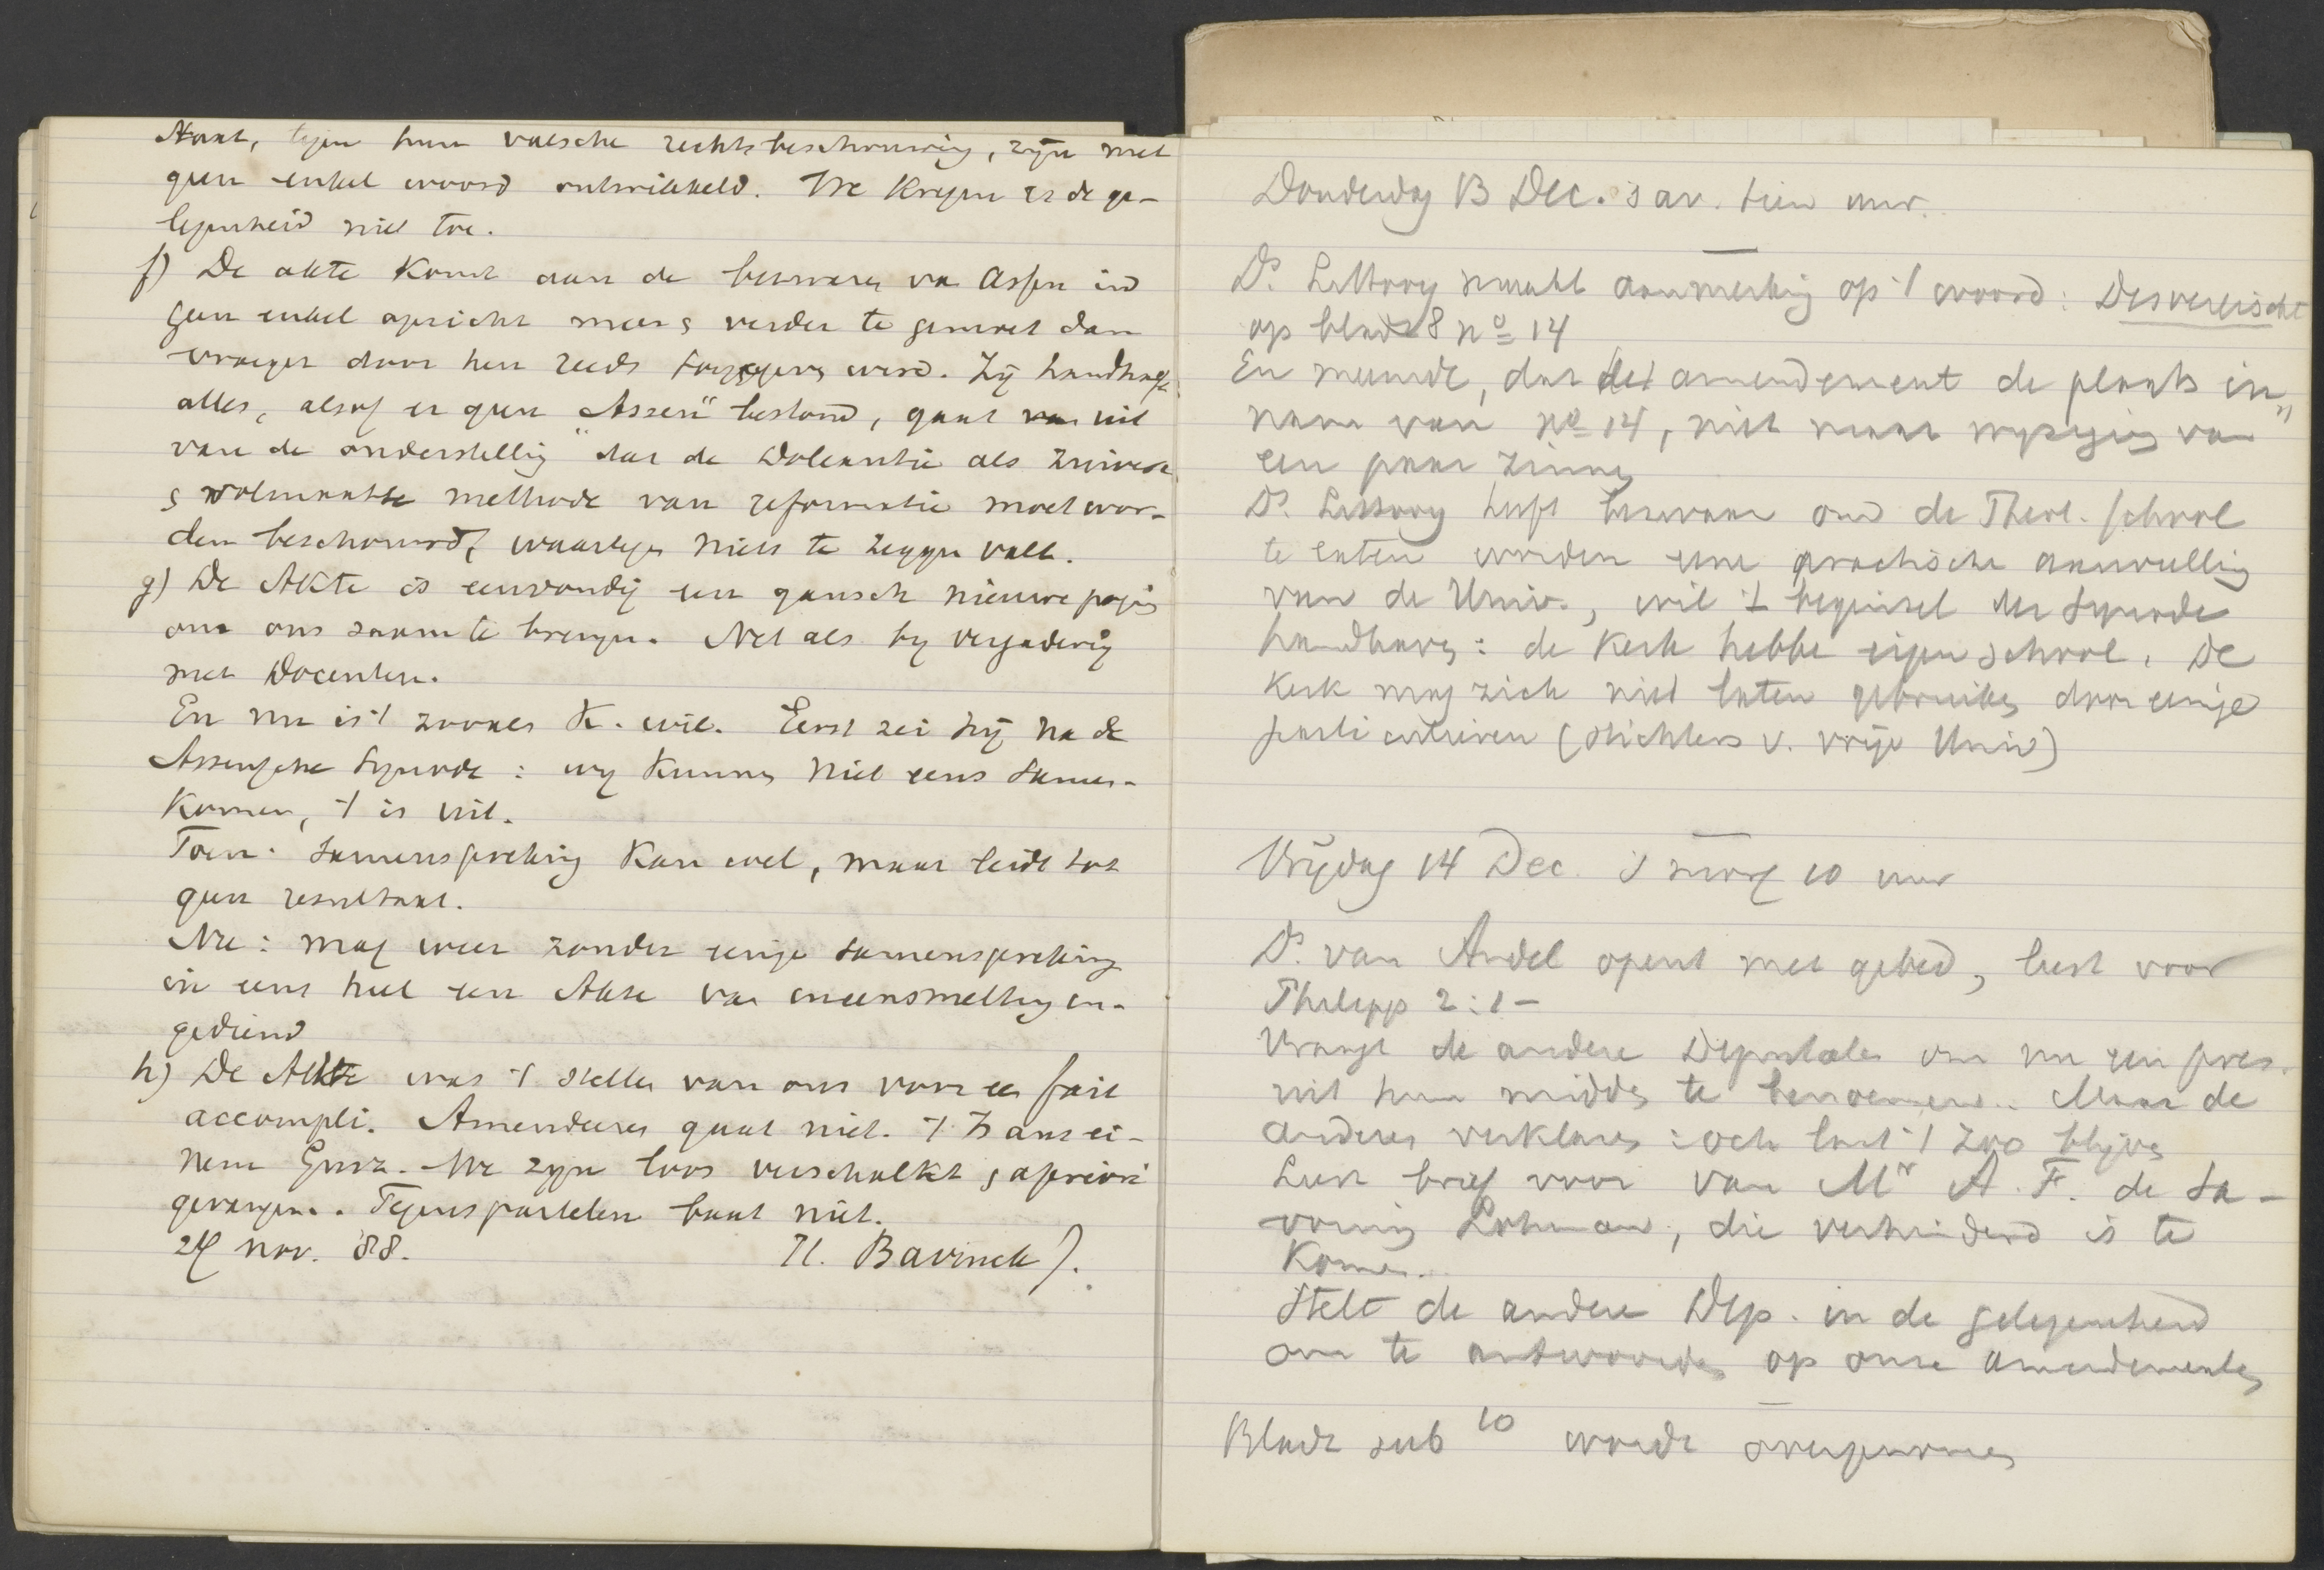 staat, tegen hun valsche rechtsbeschouwing, zijn met
geen enkel woord ontwikkeld. We kregen er de ge-
legenheid niet toe.
f) De akte komt aan de bezwaren van Assen in
geen enkel opzicht meer & verder te gemoet dan
vroeger door hen reeds toegegeven werd. Zij handhaaft
alles, alsof er geen "Assen" bestond, gaat uit
van de onderstelling dat de Doleantie als zuivere
& volmaakte methode van reformatie moet wor-
den beschouwd, waartegen niets te zeggen valt.
g) De Akte is eenvoudig een gansch nieuwe poging
om ons saam te brengen. Net als bij vergadering
met Docenten.
En nu is 't zooals K. wil. Eerst zei hij na de
Assensche Synode: wij kunnen niet eens samen-
komen, 't is uit.
Toen: samenspreking kan wel, maar leidt tot
geen resultaat.
Nu: mag weer zonder eenige samenspreking
in eens heel een Akte van ineensmelting in-
gediend
h) De Akte was 't stellen van ons voor een fait
accompli. Amendeeren gaat niet. 't Is aus ei-
nem Guss. We zijn loos verschalkt & apriori
gevangen. Tegenspartelen baat niet.
24 nov. '88. H. Bavinck).
Donderdag 13 Dec. 's av. tien uur.
Ds. Littooy maakt aanmerking op 't woord: Desvereischt
op bladz 8 no 14
En meende, dat het amendement de plaats in-
nam van no 14, niet maar wijziging van
een paar zinnen
Ds. Littooy heeft bezwaar om de Theol. school
te laten worden eene practische aanvulling
van de Univ., wil 't beginsel der Synode
handhaven: de kerk hebbe eigen school. De
kerk mag zich niet laten gebruiken door eenige
particulieren (stichters v. vrije Univ)
Vrijdag 14 Dec. 's morg 10 uur
Ds. van Andel opent met gebed, leest voor
Philipp 2:1-
Vraagt de andere Deputaten om nu een pres.
uit hun midden te benoemen. Maar de
anderen verklaren: och laat 't zoo blijven
Leest brief voor van Mr A. F. de Sa-
vornin Lohman, die verhinderd is te
komen.
Stelt de andere Dep. in de gelegenheid
om te antwoorden op onze amendementen
Bladz sub 10 wordt overgenomen